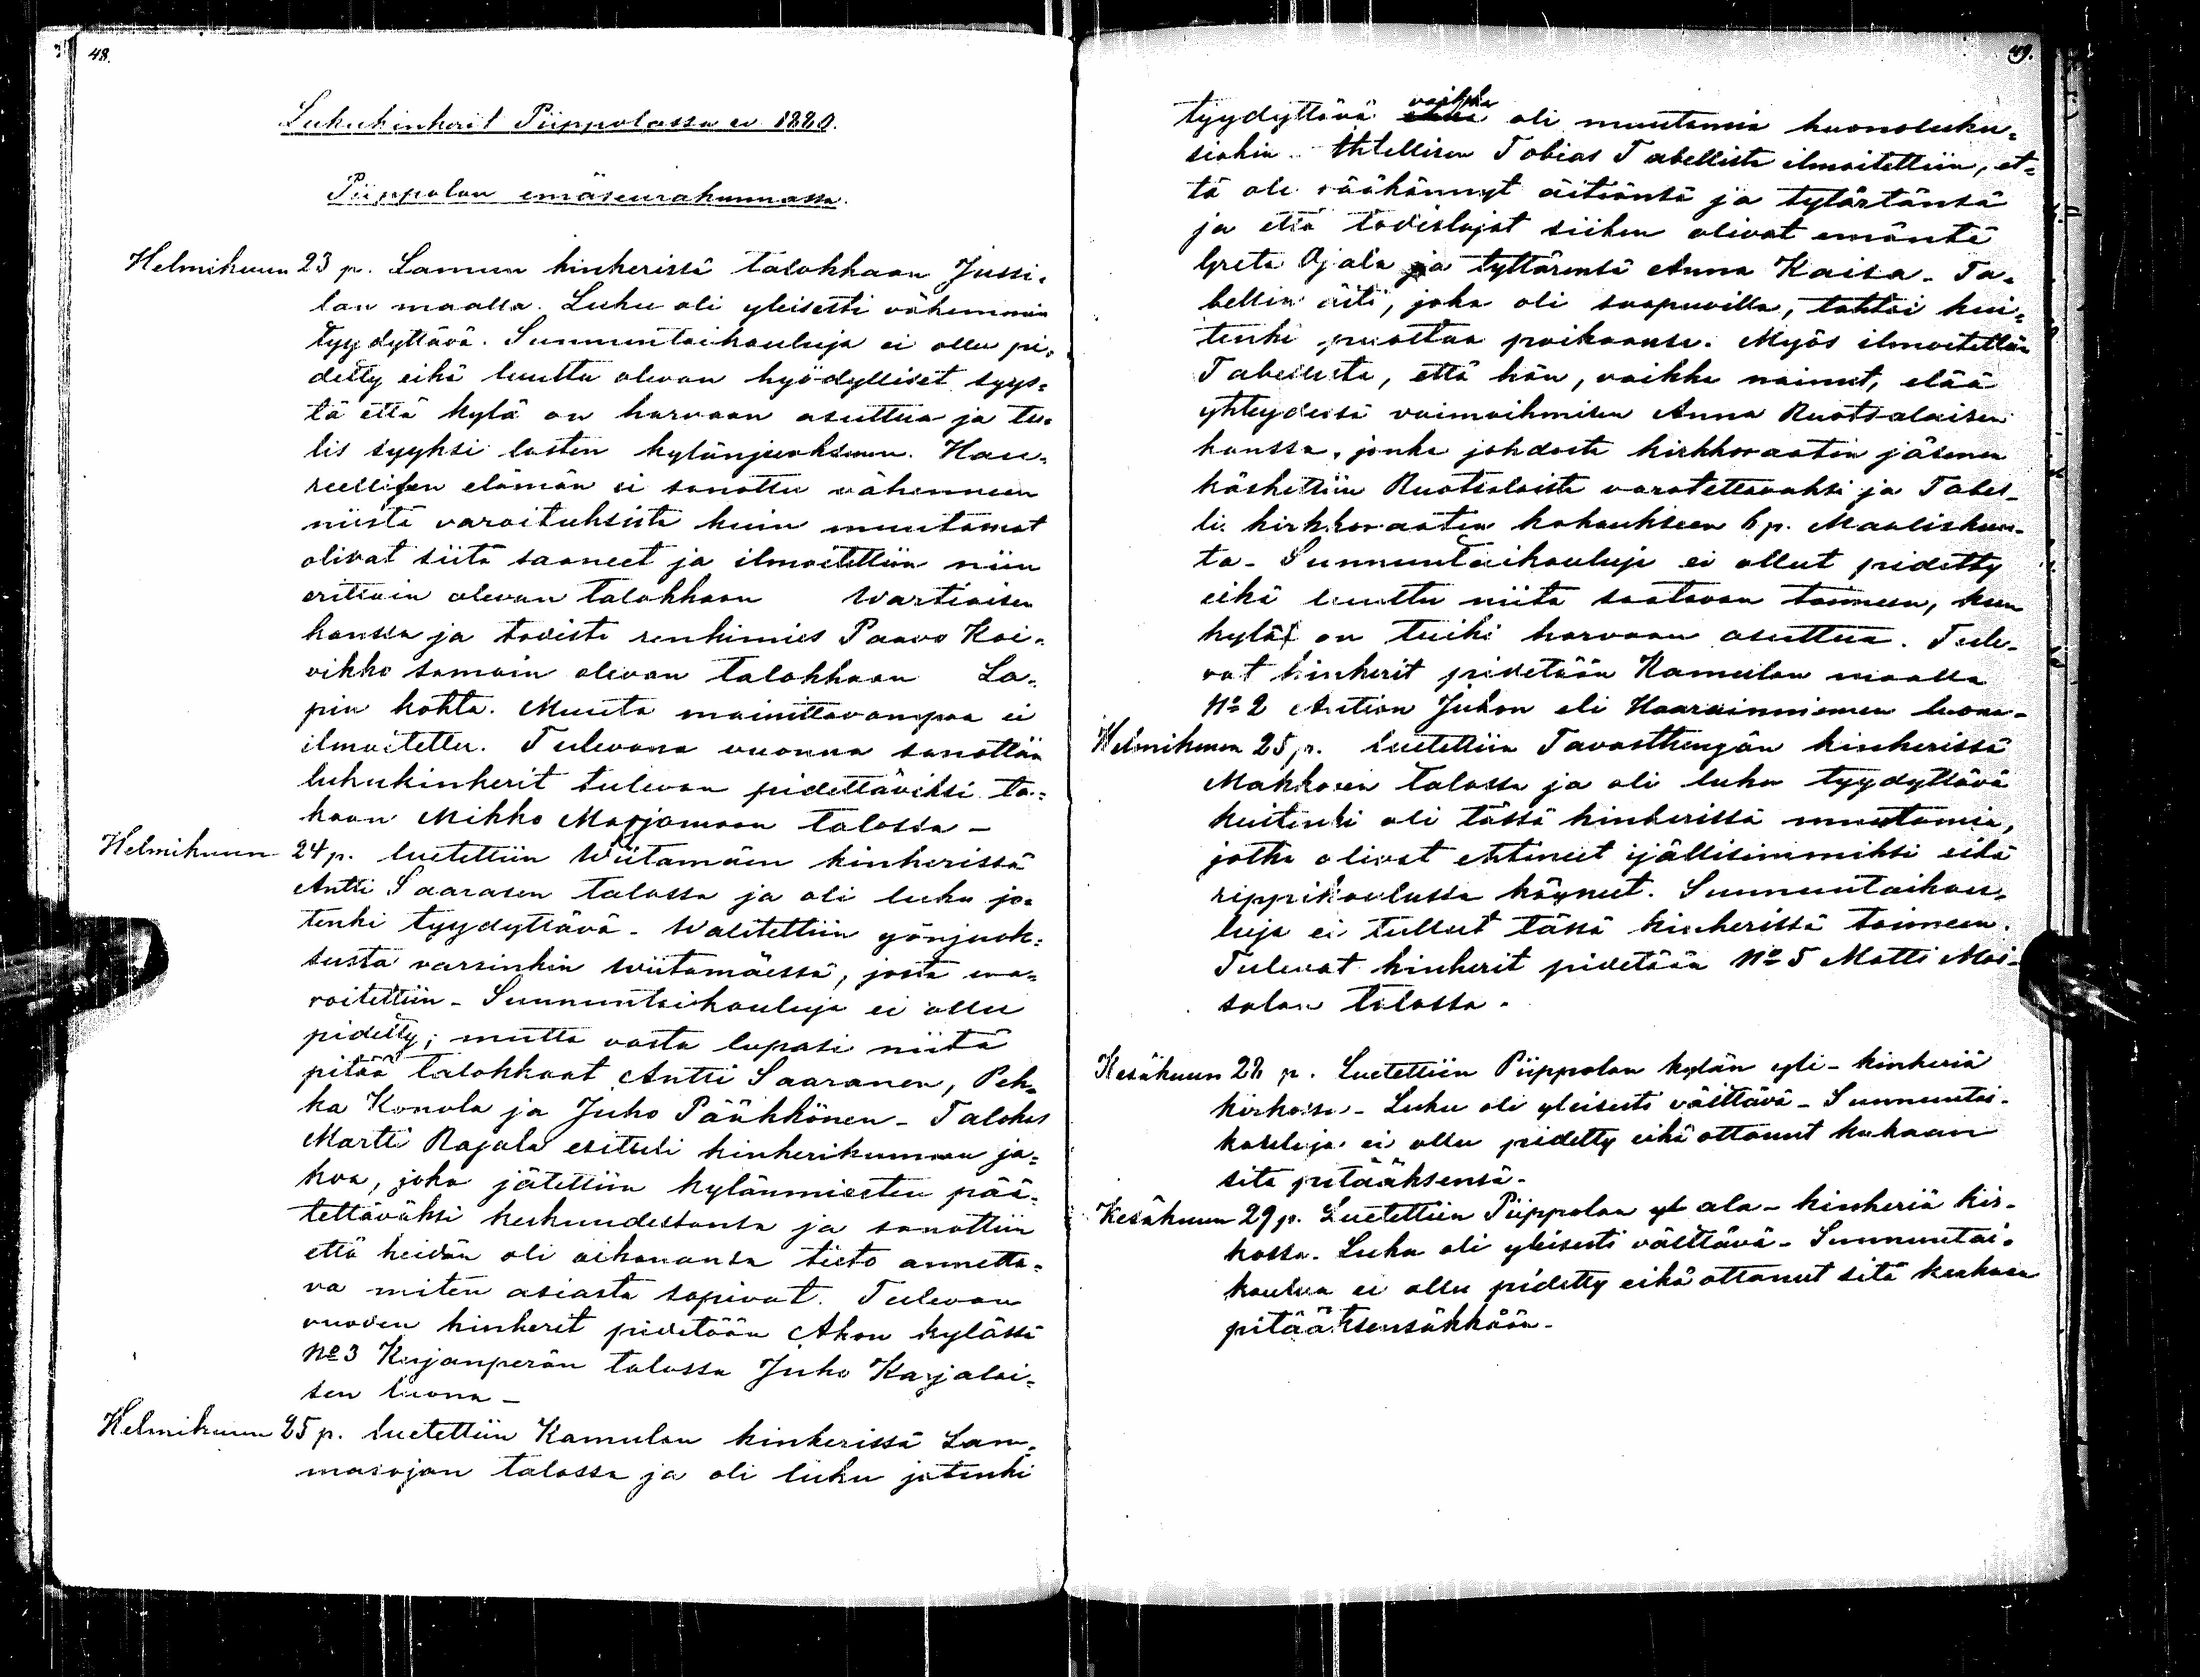 48.
Lukukinkerit Piippolassa v. 1880.
Piippolan emäseurakunnassa.
Helmikuun 23 p. Lamun kinkerissä talokkaan Jussi-
lan maalla. Luku oli yleisesti vähemmin
tyydyttävä. Sunnuntaikouluja ei ollu pi-
detty eikä luultu olevan hyödylliset syys-
tä että kylä on harvaan asuttua ja tu-
lis syyksi lasten kylänjuoksuun. Hau-
reellisen elämän ei sanottu vähenneen
niistä varoituksista kuin muutamat
olivat siitä saaneet ja ilmoitettiin niin
erittäin olevan talokkaan Wartiaisen
kanssa ja todisti renkimies Paavo Koi-
vikko samoin olevan talokkaan La-
pin kohta. Muuta mainittavampaa ei
ilmoitettu. Tulevana vuonna sanottiin
lukukinkerit tulevan pidettäviksi ta-
kaan Mikko Marjomaan talossa –
Helmikuun 24 p. luetettiin Wiitamäen kinkerissä
Antti Saarasen talossa ja oli luku jo-
tenki tyydyttävä – Walitettiin yönjuok-
susta varsinkin Wiitamäessä, josta wa-
roitettiin – Sunnuntaikouluja ei ollu
pidetty; mutta vasta lupasi niitä
pitää talokkaat Antti Saaranen, Pek-
ka Konola ja Juho Pääkkönen – Talokas
Martti Rajala esitteli kinkerikunnan ja-
koa, joka jätettiin kylänmiesten pää-
tettäväksi keskuudestansa ja sanottiin
että heidän oli aikananta tieto annetta-
va miten asiasta sopivat. Tulevan
vuoden kinkerit pidetään Ahon kylässä
No 3 Karjanperän talossa Juho Karjalai-
sen luona –
Helmikuun 25 p. luetettiin Kamulan kinkerissä Lam-
masojan talossa ja oli luku jotenki
49.
tyydyttävä vaikka oli muutamia huonoluku-
siakin. Itsellisen Tobias Tabellista ilmoitettiin, et-
tä oli rääkännyt äitiänsä ja tytärtänsä
ja että todistajat siihen olivat emäntä
Greta Ojala ja tyttärensä Anna Kaisa. Ta-
bellin äiti, joka oli saapuvilla, tahtoi kui-
tenki puoltaa poikaansa. Myös ilmoitettiin
Tabellista, että hän, vaikka nainut, elää
yhteydessä vaimoihmisen Anna Ruotsalaisen
kanssa, jonka johdosta kirkkoraatin jäsenen
käskettiin Ruotsalaista varotettavaksi ja Tabel-
li kirkkoraatin kokoukseen 6 p. Maaliskuu-
ta – Sunnuntaikouluja ei ollut pidetty
eikä luultu niitä saatavan toimeen, kun
kylä on tuiki harvaan asuttua. Tule-
vat kinkerit pidetään Kamulan maalla
No 2 Antian Juhon eli Haarainniemen luona –
Helmikuun 25 p. luetettiin Tavasthengän kinkerissä
Makkosen talossa ja oli luku tyydyttävä
kuitenki oli tässä kinkerissä muutamia,
jotka olivat ehtineet ijällisimmiksi eikä
rippikoulussa käyneet. Sunnuntaikou-
luja ei tullut tässä kinkerissä toimeen.
Tulevat kinkerit pidetään No 5 Matti Moi-
salan talossa.
Kesäkuun 28 p. Luetettiin Piippolan kylän yli-kinkeriä
kirkossa – Luku oli yleisesti välttävä – Sunnuntai-
kouluja ei ollu pidetty eikä ottanut kukaan
sitä pitääksensä –
Kesäkuun 29 p. Luetettiin Piippolan yl ala-kinkeriä kir-
kossa. Luku oli yleisesti välttävä – Sunnuntai-
koulua ei ollu pidetty eikä ottanut sitä kukaan
pitääksensäkkään –